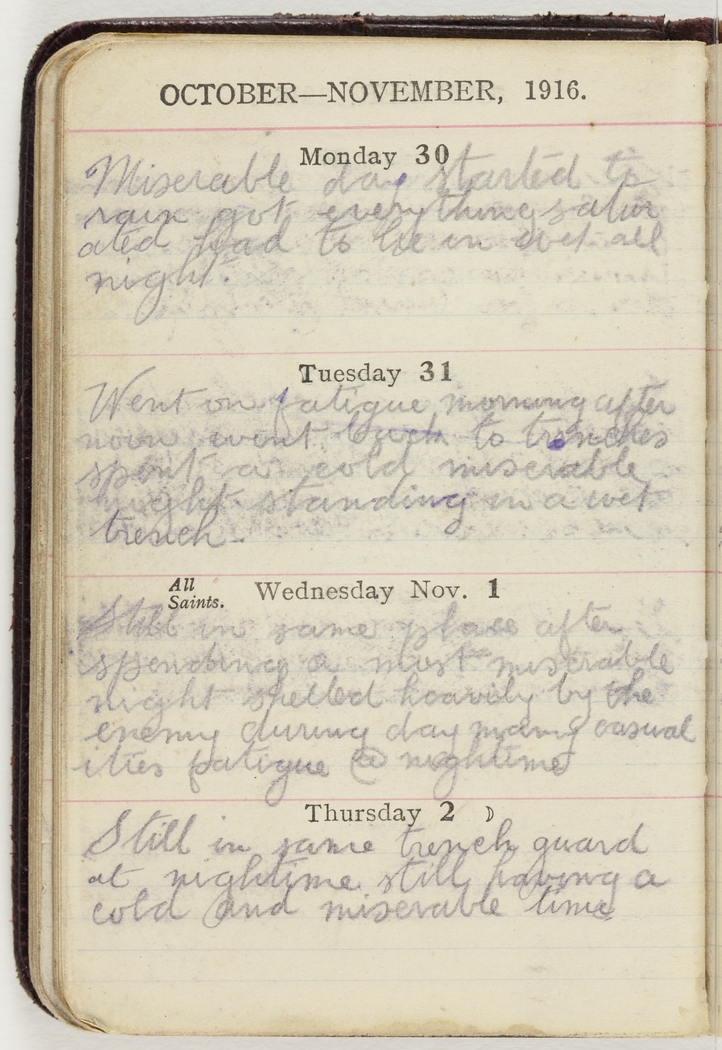 OCTOBER—NOVEMBER, 1916.
Monday 30
Miserable day started to
rain got everything satur
ated had to lie in wet all
night.
Tuesday 31
Went on fatigue morning after
noon went back to trenches
spent a cold miserable
night standing in a wet
trench.
All
Saints.
Wednesday Nov. 1
Still in same place after
spending a most miserable
night shelled heavily by the
enemy during day many casual
ities fatigue @ nightime
Thursday 2 ☽
Still in same trench guard
at nightime still having a
cold and miserable time